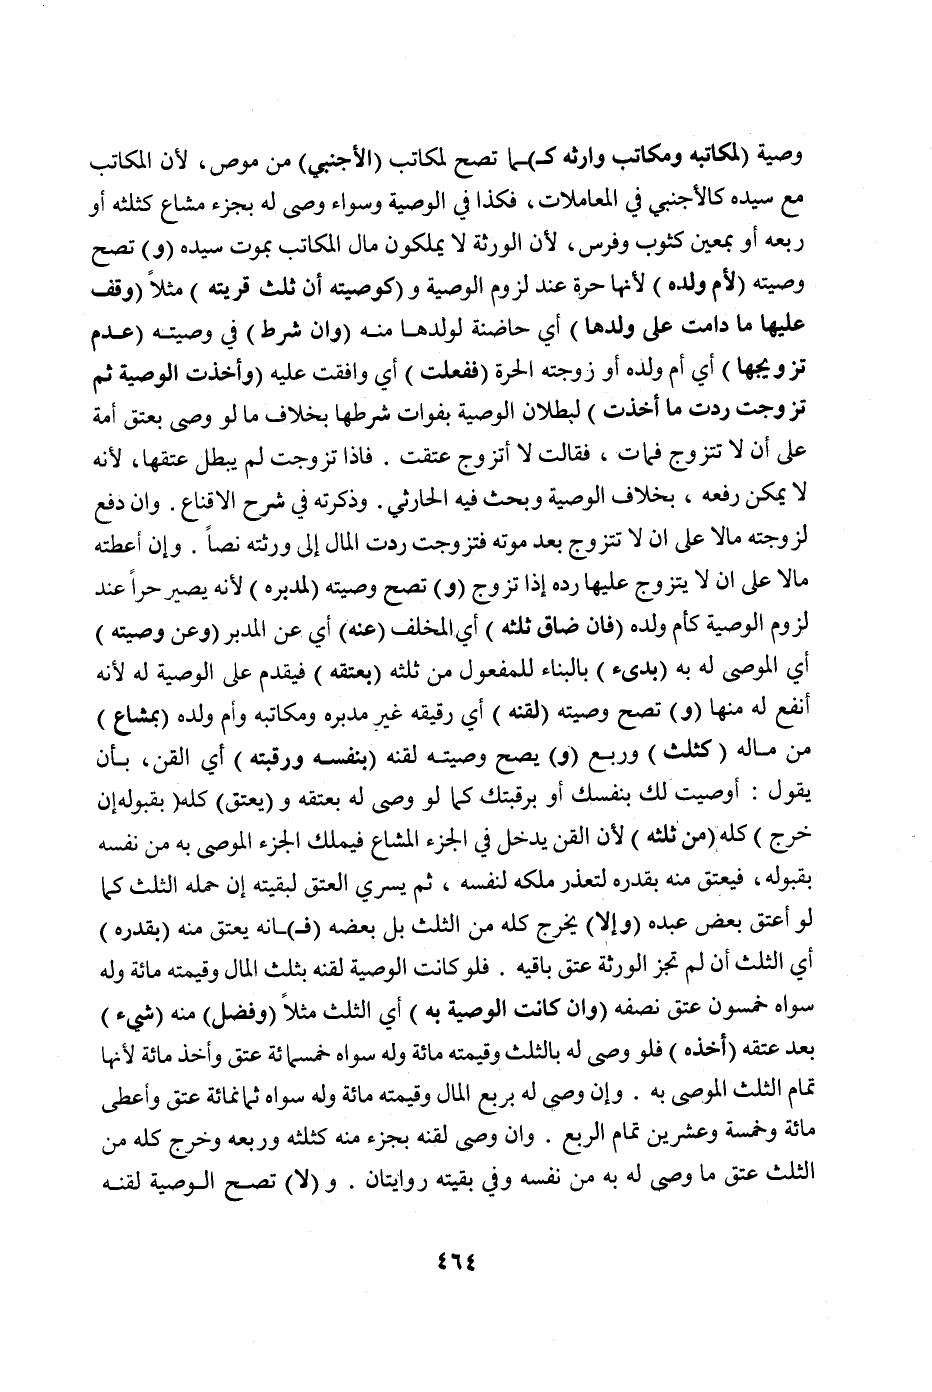 وصية (لمكاتبه ومكاتب وارثه كـ)ـما تصح لمكاتب (الأجنبي) من موص، لأن المكاتب
مع سيده كالأجنبي في المعاملات، فكذا في الوصية وسواء وصى له بجزء مشاع كثلثه أو
ربعه أو بمعين كثوب وفرس، لأن الورثة لا يملكون مال المكاتب بموت سيده (و) تصح
وصيته (لأم ولده) لأنها حرة عند لزوم الوصية و (كوصيته أن ثلث قريته) مثلاً (وقف
عليها ما دامت على ولدها) أي حاضنة لولدهـا منـه (وان شرط) في وصيتـه (عـدم
تزويجها) أي أم ولده أو زوجته الحرة (ففعلت) أي وافقت عليه (وأخذت الوصية ثم
تزوجت ردت ما أخذت) لبطلان الوصية بفوات شرطها بخلاف ما لو وصى بعتق أمة
على أن لا تتزوج فمات ، فقالت لا أتزوج عتقت . فاذا تزوجت لم يبطل عتقها، لأنه
لا يمكن رفعه ، بخلاف الوصية وبحث فيه الحارثي. وذكرته في شرح الاقناع. وان دفع
لزوجته مالا على ان لا تتزوج بعد موته فتزوجت ردت المال إلى ورثته نصاً . وإن أعطته
مالا على ان لا يتزوج عليها رده إذا تزوج (و) تصح وصيته (لمدبره) لأنه يصير حراً عند
لزوم الوصية كأم ولده (فان ضاق ثلثه) أي المخلف (عنه) أي عن المدبر (وعن وصيته)
أي الموصى له به (بدىء) بالبناء للمفعول من ثلثه (بعتقه) فيقدم على الوصية له لأنه
أنفع له منها (و) تصح وصيته (لقنه) أي رقيقه غير مدبره ومكاتبه وأم ولده (بمشاع)
من مـاله (كثلث) وربـع (و) يصح وصيتـه لقنه (بنفسـه ورقبته) أي القن، بـأن
يقول : أوصيت لك بنفسك أو برقبتك كما لو وصى له بعتقه و (يعتق) كله( بقبوله إن
خرج) كله (من ثلثه) لأن القن يدخل في الجزء المشاع فيملك الجزء الموصى به من نفسه
بقبوله، فيعتق منه بقدره لتعذر ملكه لنفسه ، ثم يسري العتق لبقيته إن حمله الثلث كما
لو أعتق بعض عبده (وإلا) يخرج كله من الثلث بل بعضه (فـ)ـانه يعتق منه (بقدره)
أي الثلث أن لم تجز الورثة عتق باقيه . فلو كانت الوصية لقنه بثلث المال وقيمته مائة وله
سواه خمسون عتق نصفه (وان كانت الوصية به) أي الثلث مثلاً (وفضل) منه (شيء)
بعد عتقه (أخذه) فلو وصى له بالثلث وقيمته مائة وله سواه خمسمائة عتق وأخذ مائة لأنها
تمام الثلث الموصى به . وإن وصى له بربع المال وقيمته مائة وله سواه ثمانمائة عتق وأعطى
مائة وخمسة وعشرين تمام الربع . وان وصى لقنه بجزء منه كثلثه وربعه وخرج كله من
الثلث عتق ما وصى له به من نفسه وفي بقيته روايتان . و (لا) تصـح الـوصية لقنـه
٤٦٤